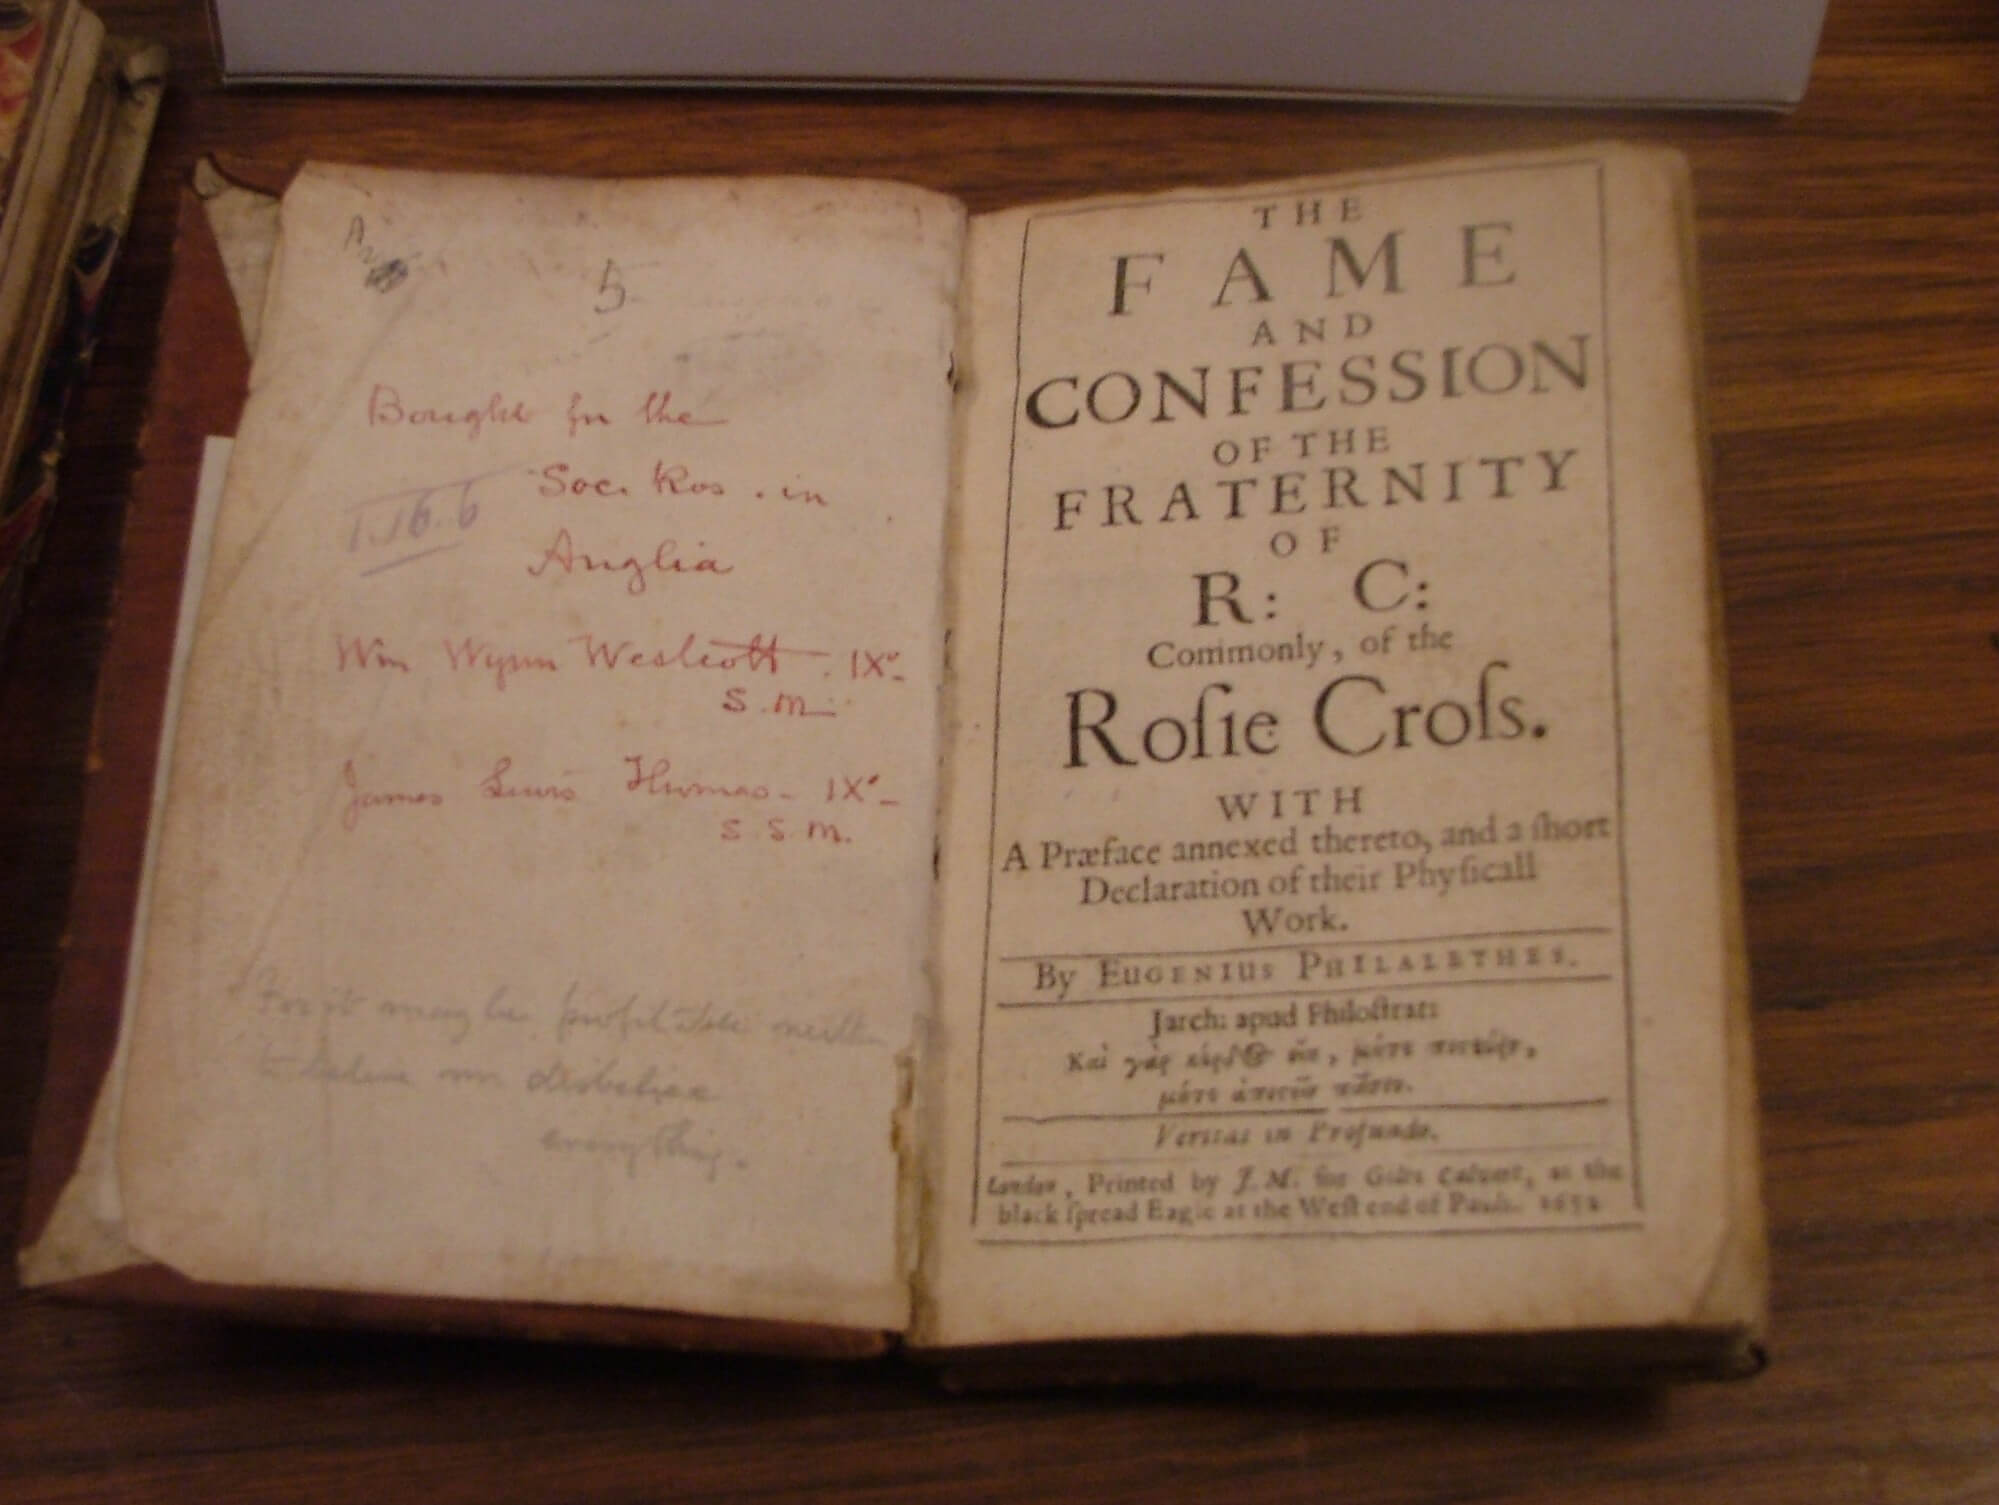 5
Bought for the
Soc. Ros. in
I.16.6
Anglia
Wm Wynn Westcott. IX°-
S.M.
James Lewis Thomas- IX°-
S.S.M.
For it may be profitable neither
to believe nor disbelieve
everything.
THE
FAME
AND
CONFESSION
OF THE
FRATERNITY
OF
R: C:
Commonly, of the
Roſie Croſs.
WITH
A Præface annexed thereto, and a ſhort
Declaration of their Phyſicall
Work.
By EUGENIUS PHILALETHES.
Jarch: apud Philoſtrat:
Καὶ γὰρ
Veritas in Profundo.
London, Printed by J. M. for Giles Calvert, at the
black ſpread Eagle at the Weſt end of Pauls. 1652